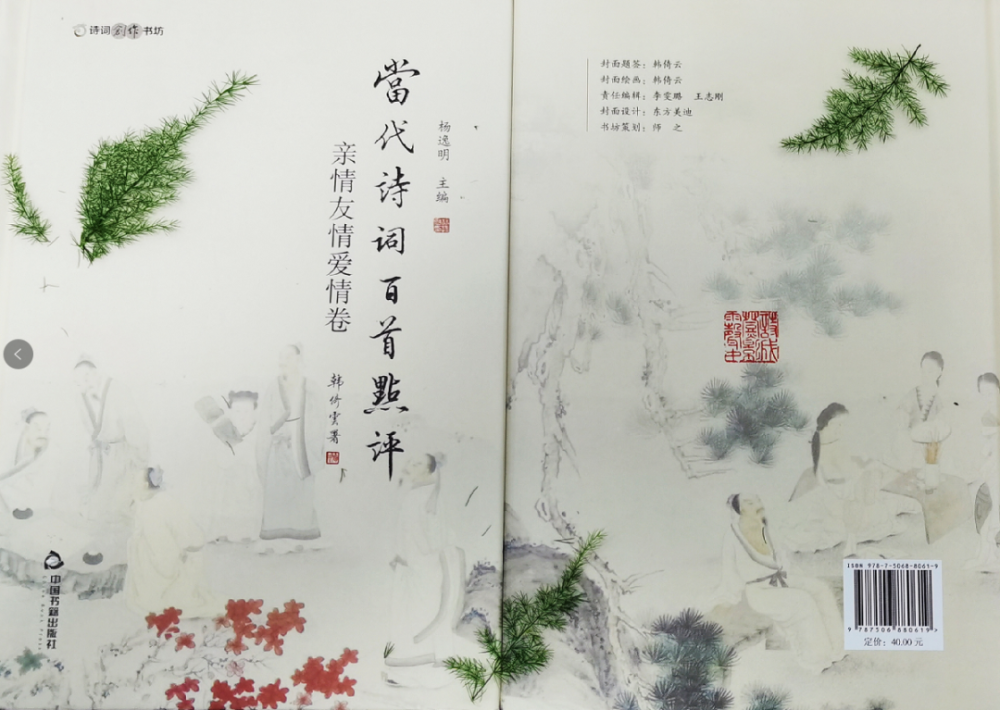 诗词创作书坊
當代诗词百首點评
亲情友情爱情卷
杨逸明 主编
韩倚云署
中国书籍出版社
封面题签：韩倚云
封面绘画：韩倚云
责任编辑：李雯璐 王志刚
封面设计：东方美迪
书坊策划：师 之
ISBN 978-7-5068-8061-9
9 787506 880619 >
定价：40.00 元